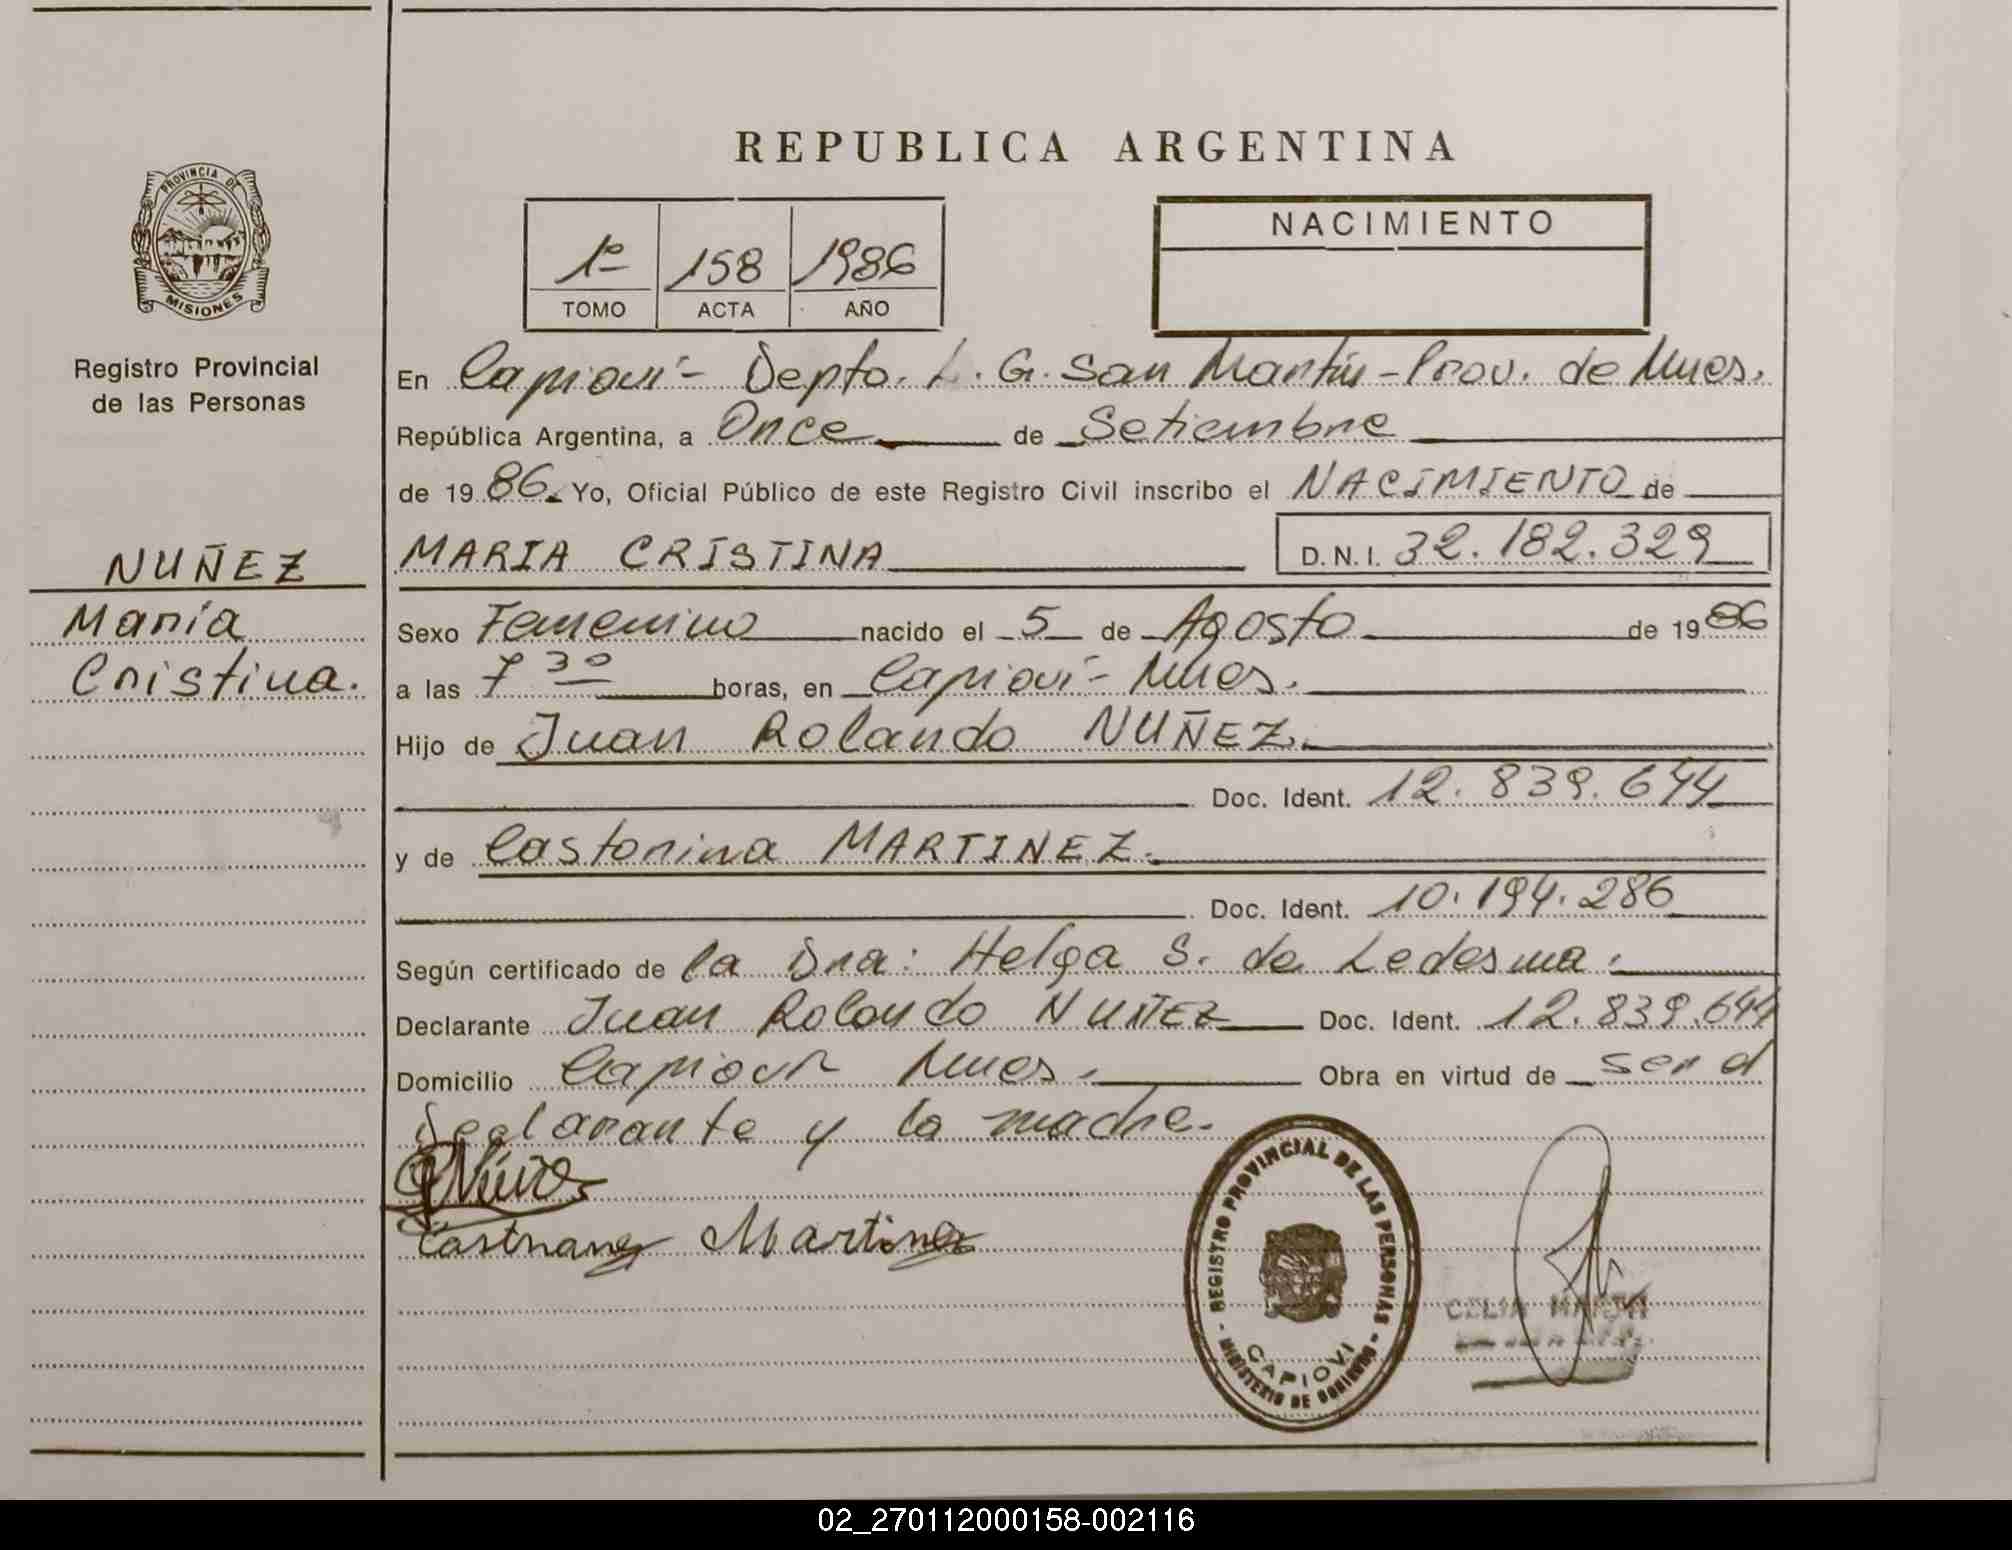 REPUBLICA ARGENTINA
PROVINCIA DE
MISIONES
Registro Provincial
de las Personas
NUÑEZ
María
Cristina.
1º 158 1986
TOMO ACTA AÑO
NACIMIENTO
En Capioví- Depto. L. G. San Martín - Prov. de Mnes.
República Argentina, a Once de Setiembre
de 1986. Yo, Oficial Público de este Registro Civil inscribo el NACIMIENTO de
MARIA CRISTINA D.N.I. 32.182.329
Sexo Femenino nacido el 5 de Agosto de 1986
a las 7 30 horas, en Capioví- Mnes.
Hijo de Juan Rolando NUÑEZ.
Doc. Ident. 12.839.644
y de Castorina MARTINEZ.
Doc. Ident. 10.194.286
Según certificado de la Dra: Helga S. de Ledesma.
Declarante Juan Rolando NUÑEZ Doc. Ident. 12.839.644
Domicilio Capioví Mnes. Obra en virtud de ser el
declarante y la madre.
Martinez
REGISTRO PROVINCIAL DE LAS PERSONAS - MINISTERIO DE GOBIERNO -
CAPIOVI
CELIA
02_270112000158-002116